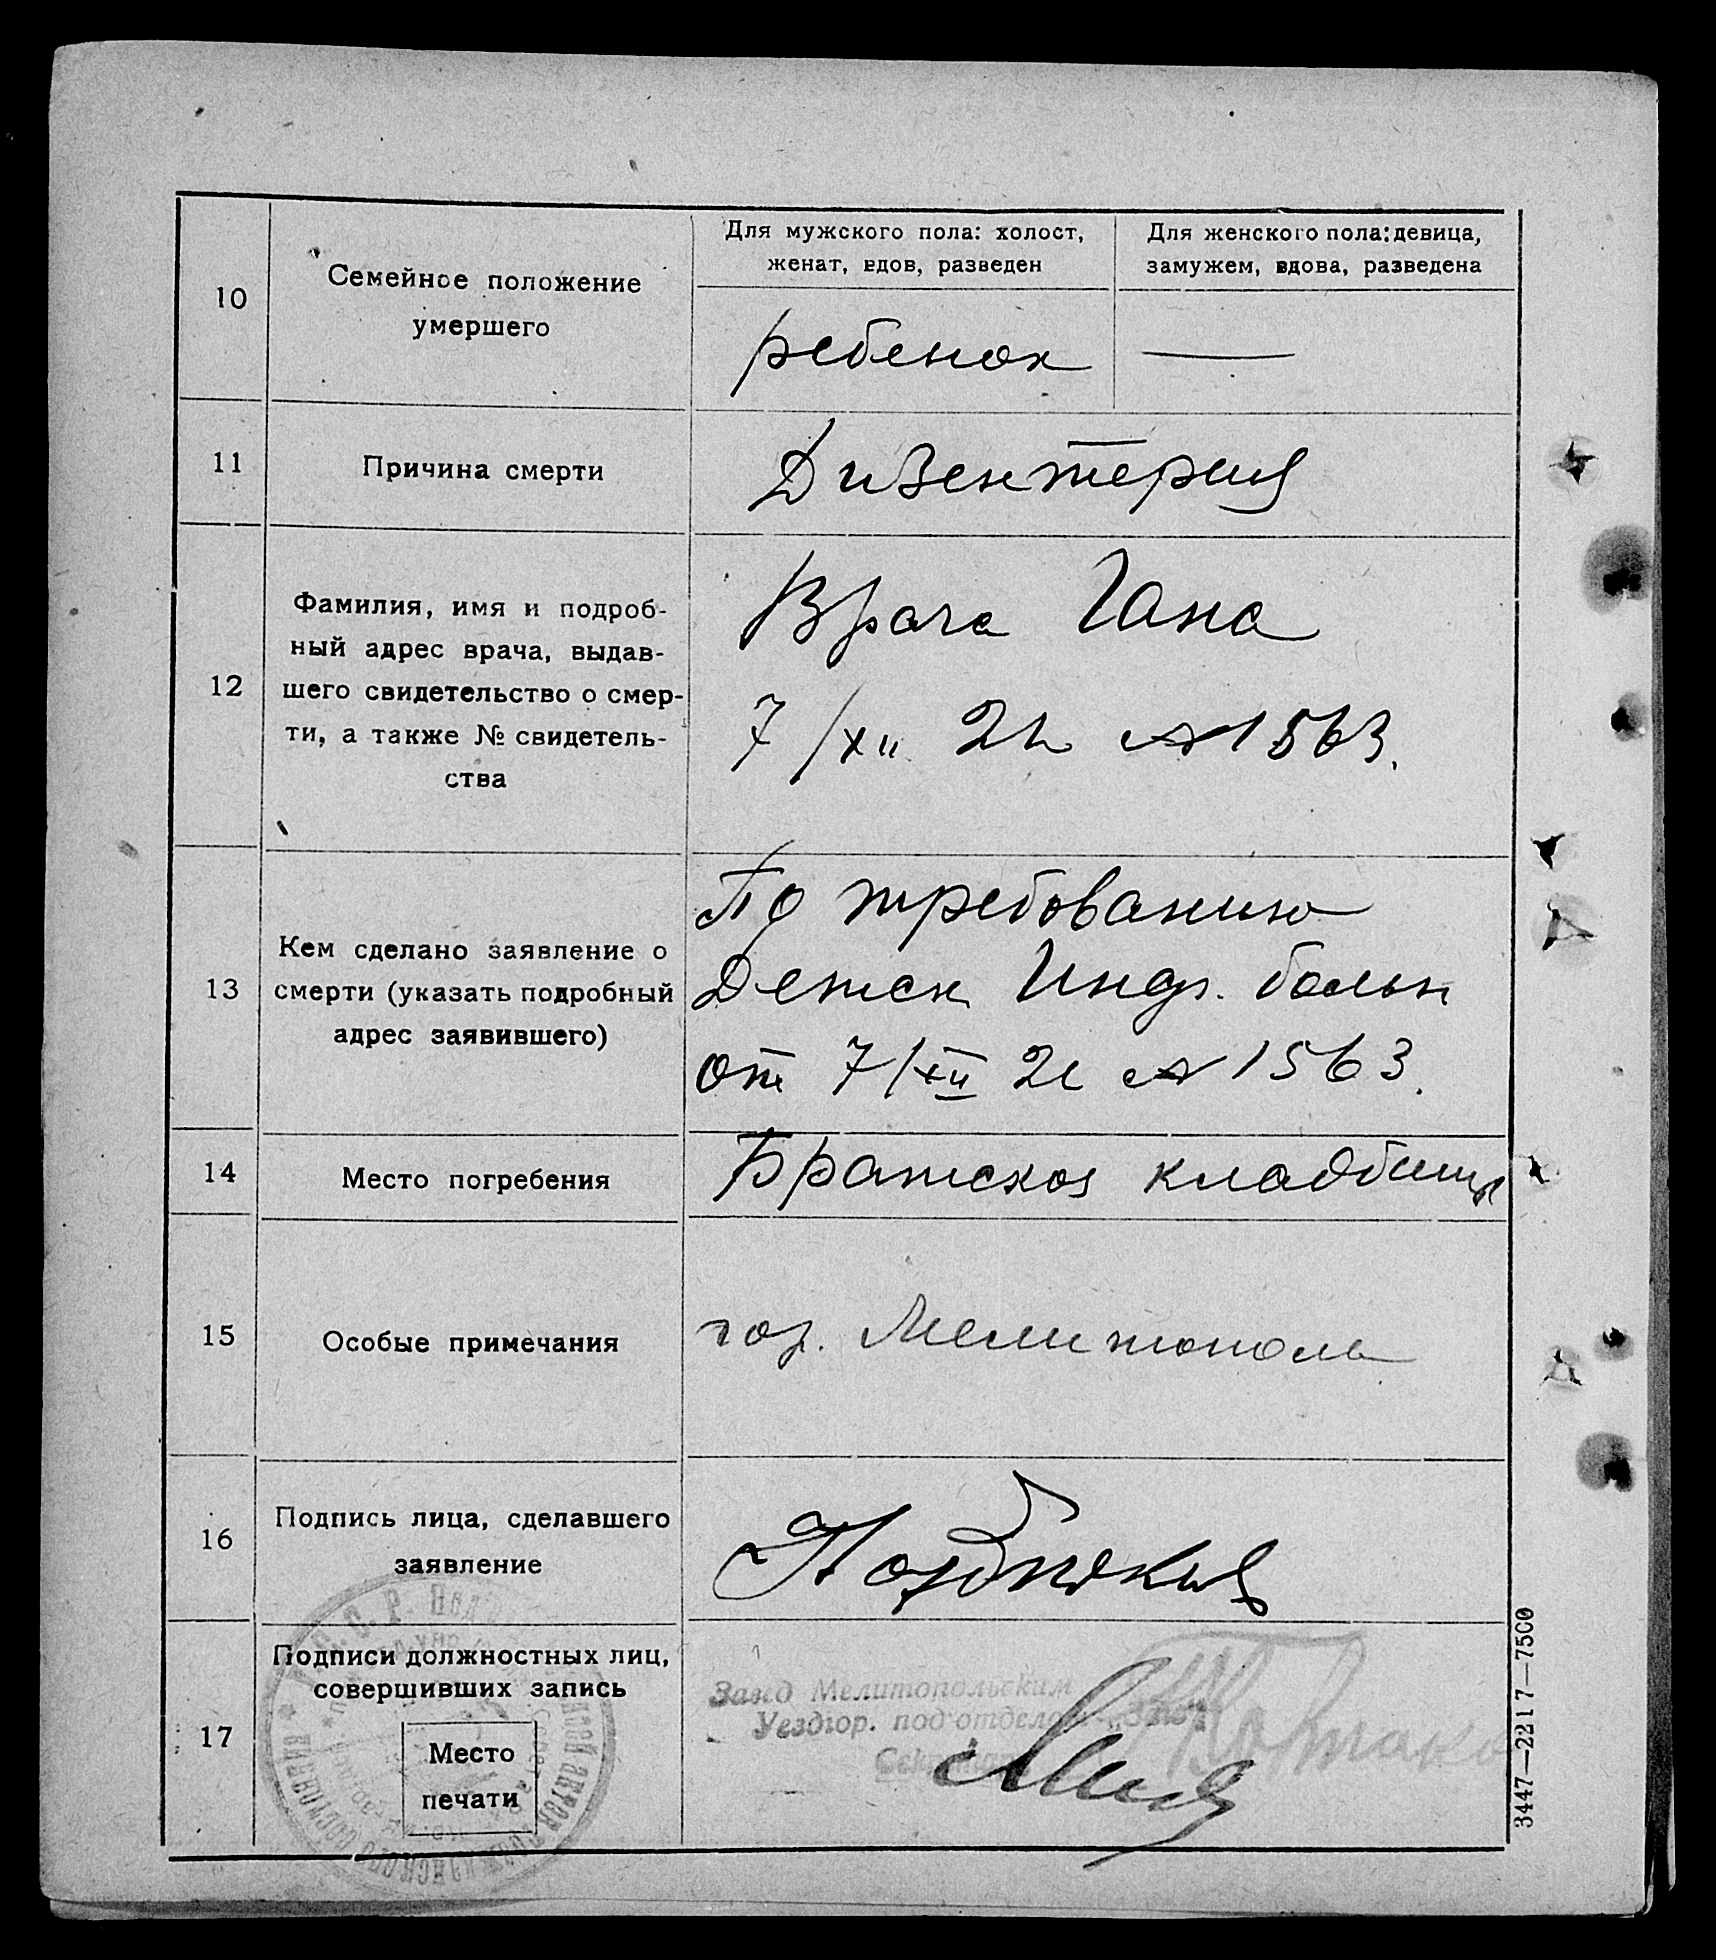 10
Семейное положение
умершего
Для мужского пола: холост,
женат, вдов, разведен
Для женского пола: девица,
замужем, вдова, разведена
ребенок
—
11
Причина смерти
Дизентерия
12
Фамилия, имя и подроб-
ный адрес врача, выдав-
шего свидетельство о смер-
ти, а также № свидетель-
ства
Врача Гана
7/XII № 1563.
13
Кем сделано заявление о
смерти (указать подробный
адрес заявившего)
По требованию
Детск больн
от 7/XII № 1563.
14
Место погребения
Братское кладбище
15
Особые примечания
гор. Мелитополь
16
Подпись лица, сделавшего
заявление
17
Подписи должностных лиц,
совершивших запись
Место
печати
Завед Мелитопольским
Уездгор. подотделом
3447—2217—7500